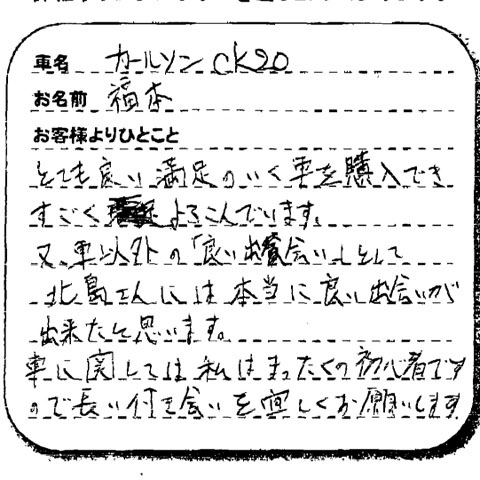 車名 カールソンCK20
お名前 福本
お客様よりひとこと
とても良い満足のいく車を購入でき
すごくよろこんでいます。
又、車以外の「良い出会い」として
北島さんには本当に良い出会いが
出来たと思います。
車に関しては私はまったくの初心者です
ので長い付き合いを宜しくお願いします